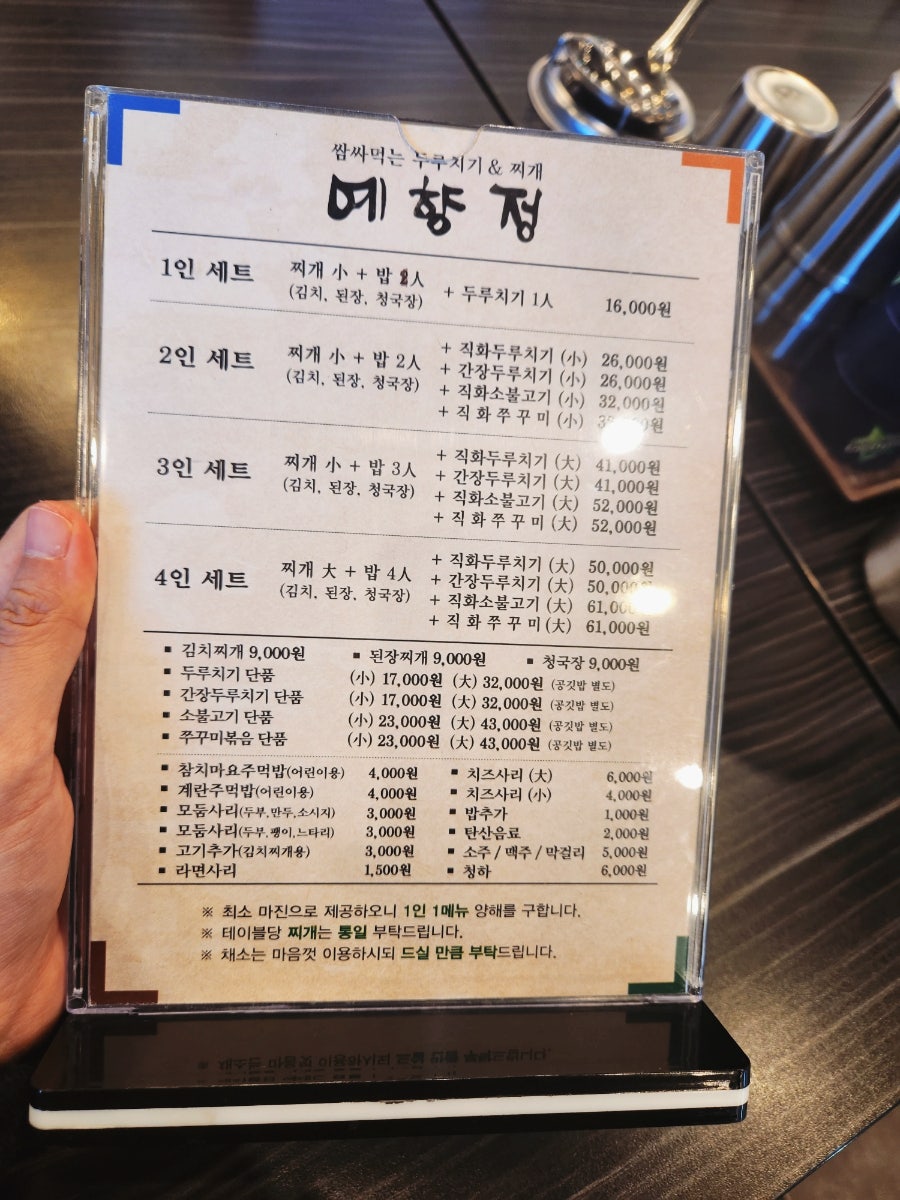 쌈싸먹는 두루치기 & 찌개
예향정
1인 세트 찌개 小 + 밥 人 (김치, 된장, 청국장) + 두루치기 1人 16,000원
2인 세트 찌개 小 + 밥 2人 (김치, 된장, 청국장)
+ 직화두루치기 (小) 26,000원
+ 간장두루치기 (小) 26,000원
+ 직화소불고기 (小) 32,000원
+ 직화쭈꾸미 (小)
3인 세트 찌개 小 + 밥 3人 (김치, 된장, 청국장)
+ 직화두루치기 (大) 41,000원
+ 간장두루치기 (大) 41,000원
+ 직화소불고기 (大) 52,000원
+ 직화쭈꾸미 (大) 52,000원
4인 세트 찌개 大 + 밥 4人 (김치, 된장, 청국장)
+ 직화두루치기 (大) 50,000원
+ 간장두루치기 (大) 50,000원
+ 직화소불고기 (大)
+ 직화쭈꾸미 (大) 61,000원
▪ 김치찌개 9,000원 ▪ 된장찌개 9,000원 ▪ 청국장 9,000원
▪ 두루치기 단품 (小) 17,000원 (大) 32,000원 (공깃밥 별도)
▪ 간장두루치기 단품 (小) 17,000원 (大) 32,000원 (공깃밥 별도)
▪ 소불고기 단품 (小) 23,000원 (大) 43,000원 (공깃밥 별도)
▪ 쭈꾸미볶음 단품 (小) 23,000원 (大) 43,000원 (공깃밥 별도)
▪ 참치마요주먹밥(어린이용) 4,000원 ▪ 치즈사리 (大) 6,000원
▪ 계란주먹밥(어린이용) 4,000원 ▪ 치즈사리 (小) 4,000원
▪ 모둠사리(두부,만두,소시지) 3,000원 ▪ 밥추가 1,000원
▪ 모둠사리(두부,팽이,느타리) 3,000원 ▪ 탄산음료 2,000원
▪ 고기추가(김치찌개용) 3,000원 ▪ 소주 / 맥주 / 막걸리 5,000원
▪ 라면사리 1,500원 ▪ 청하 6,000원
※ 최소 마진으로 제공하오니 1인 1메뉴 양해를 구합니다.
※ 테이블당 찌개는 통일 부탁드립니다.
※ 채소는 마음껏 이용하시되 드실 만큼 부탁드립니다.